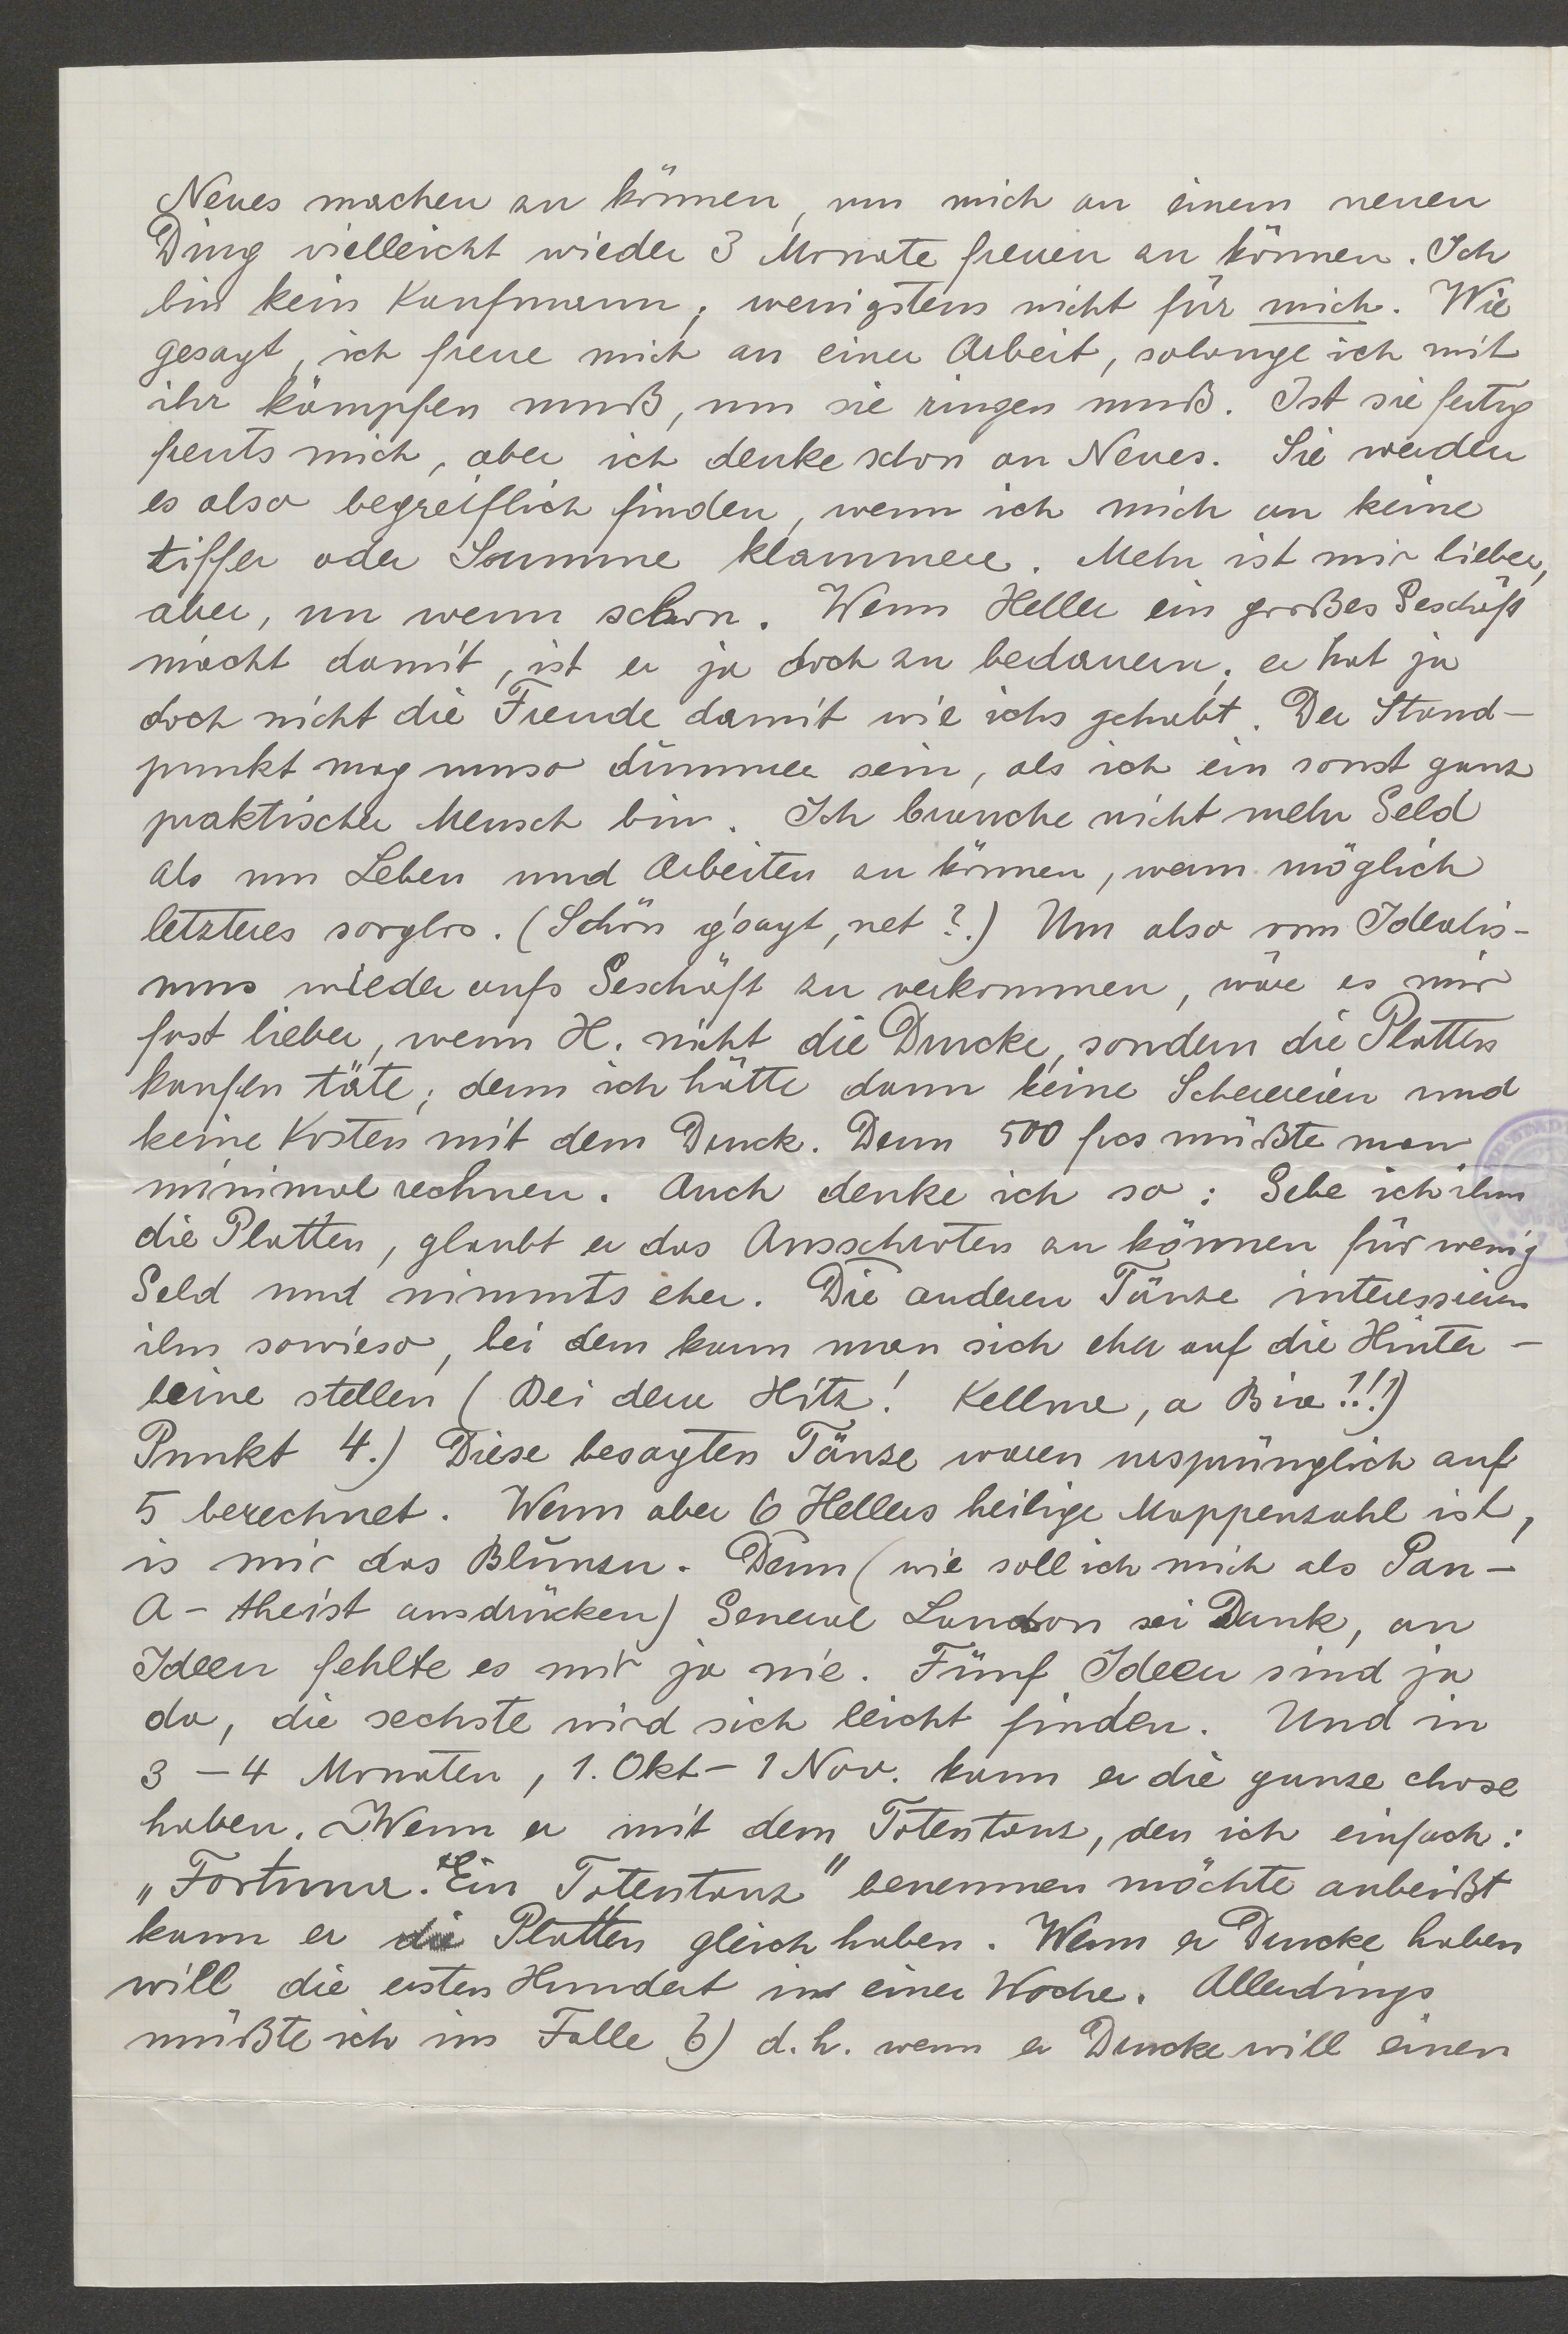 Neues machen zu können, um mich an einem neuen
Ding vielleicht wieder 3 Monate freuen zu können. Ich
bin kein Kaufmann; wenigstens nicht für mich. Wie
gesagt, ich freue mich an einer Arbeit, solange ich mit
ihr kämpfen muß, um sie ringen muß. Ist sie fertig
freuts mich, aber ich denke schon an Neues. Sie werden
es also begreiflich finden, wenn ich mich an keine
Ziffer oder Summe klammere. Mehr ist mir lieber,
aber, un wenn schon. Wenn Heller ein großes Geschäft
macht damit, ist er ja doch zu bedauern; er hat ja
doch nicht die Freude damit wie ichs gehabt. Der Stand-
punkt mag umso dümmer sein, als ich ein sonst ganz
praktischer Mensch bin. Ich brauche nicht mehr Geld
als um Leben und Arbeiten zu können, wenn möglich
letzteres sorglos. (Schön g'sagt, net?.) Um also vom Idealis-
mus wieder aufs Geschäft zu verkommen, wäre es mir
fast lieber, wenn H. nicht die Drucke, sondern die Platten
kaufen täte; denn ich hätte dann keine Scherereien und
keine Kosten mit dem Druck. Denn 500 frcs müßte man
minimal rechnen. Auch denke ich so: Gebe ich ihm
die Platten, glaubt er das Ausschroten zu können für wenig
Geld und nimmts eher. Die anderen Tänze interessieren
ihn sowieso, bei dem kann man sich eher auf die Hinter-
beine stellen (Bei dera Hitz! Kellma, a Bia!!!)
Punkt 4.) Diese besagten Tänze waren ursprünglich auf
5 berechnet. Wenn aber 6 Hellers heilige Mappenzahl ist,
is mir das Blunzn. Denn (wie soll ich mich als Pan-
A-theist ausdrücken) General Laudon sei Dank, an
Ideen fehlte es mir ja nie. Fünf Ideen sind ja
da, die sechste wird sich leicht finden. Und in
3-4 Monaten, 1. Okt-1 Nov. kann er die ganze chose
haben. Wenn er mit dem Totentanz, den ich einfach:
„Fortuna. Ein Totentanz" benennen möchte anbeißt
kann er die Platten gleich haben. Wenn er Drucke haben
will die ersten Hundert in einer Woche. Allerdings
müßte ich im Falle b) d.h. wenn er Drucke will einen